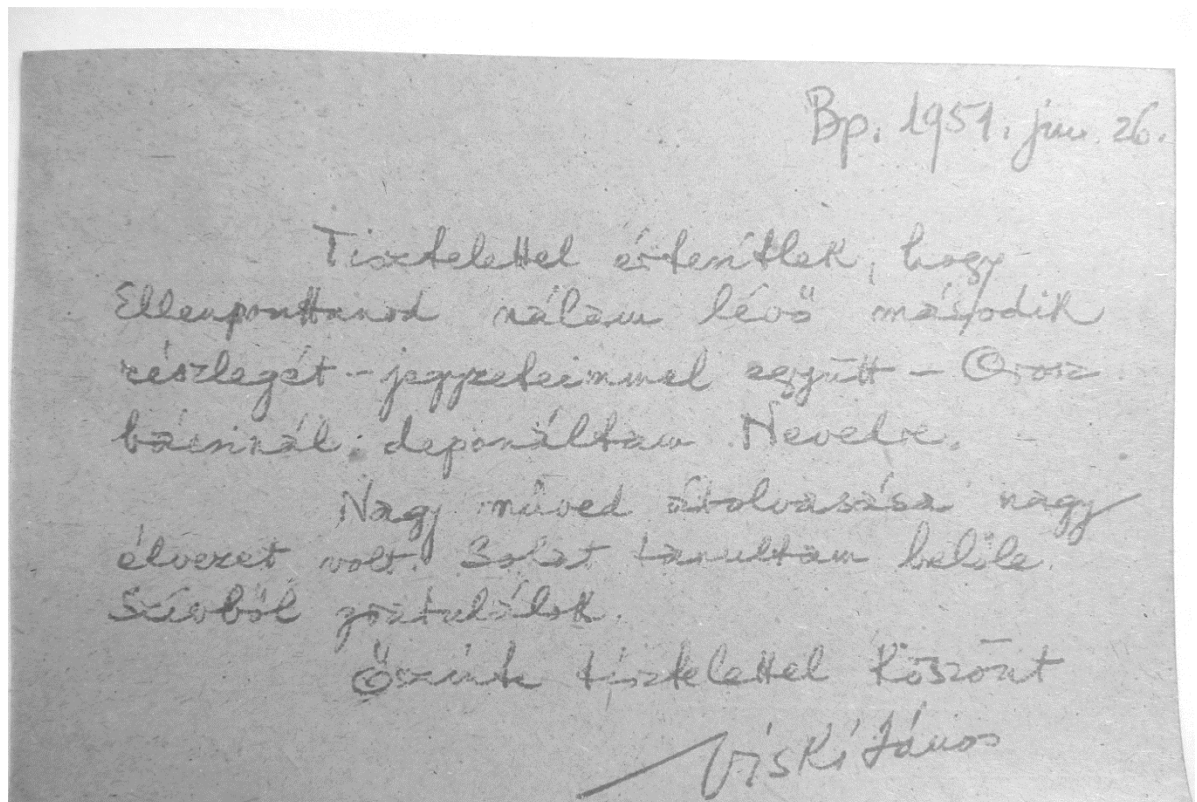 Bp. 1951. jun. 26.
Tisztelettel értesítlek, hogy
Ellenponttanod nálam lévő második
részlegét - jegyzeteimmel együtt - Orosz
bácsinál deponáltam Nevedre.
Nagy műved átolvasása nagy
élvezet volt. Sokat tanultam belőle.
Szívből gratulálok.
Őszinte tisztelettel köszönt
Viski János